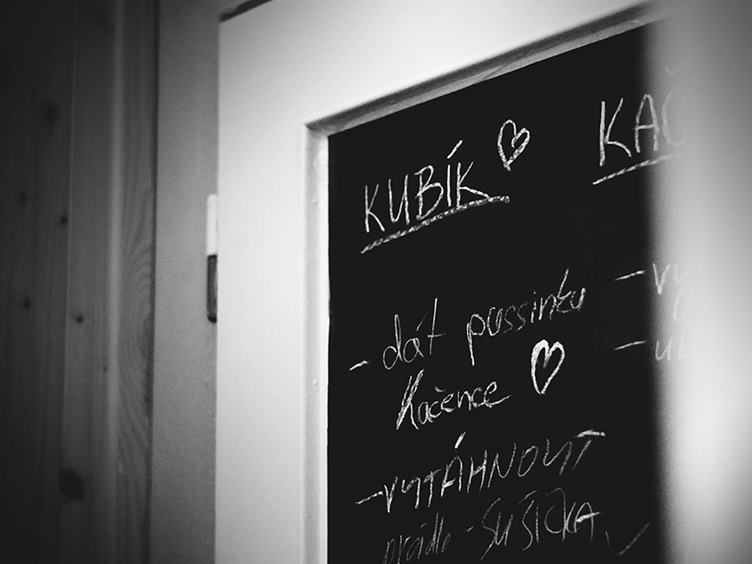 KUBÍK ♡
- dát pussinku
Kačence ♡
- VYTÁHNOUT
prádlo - SUŠIČKA
KAČ
- vy
- ul